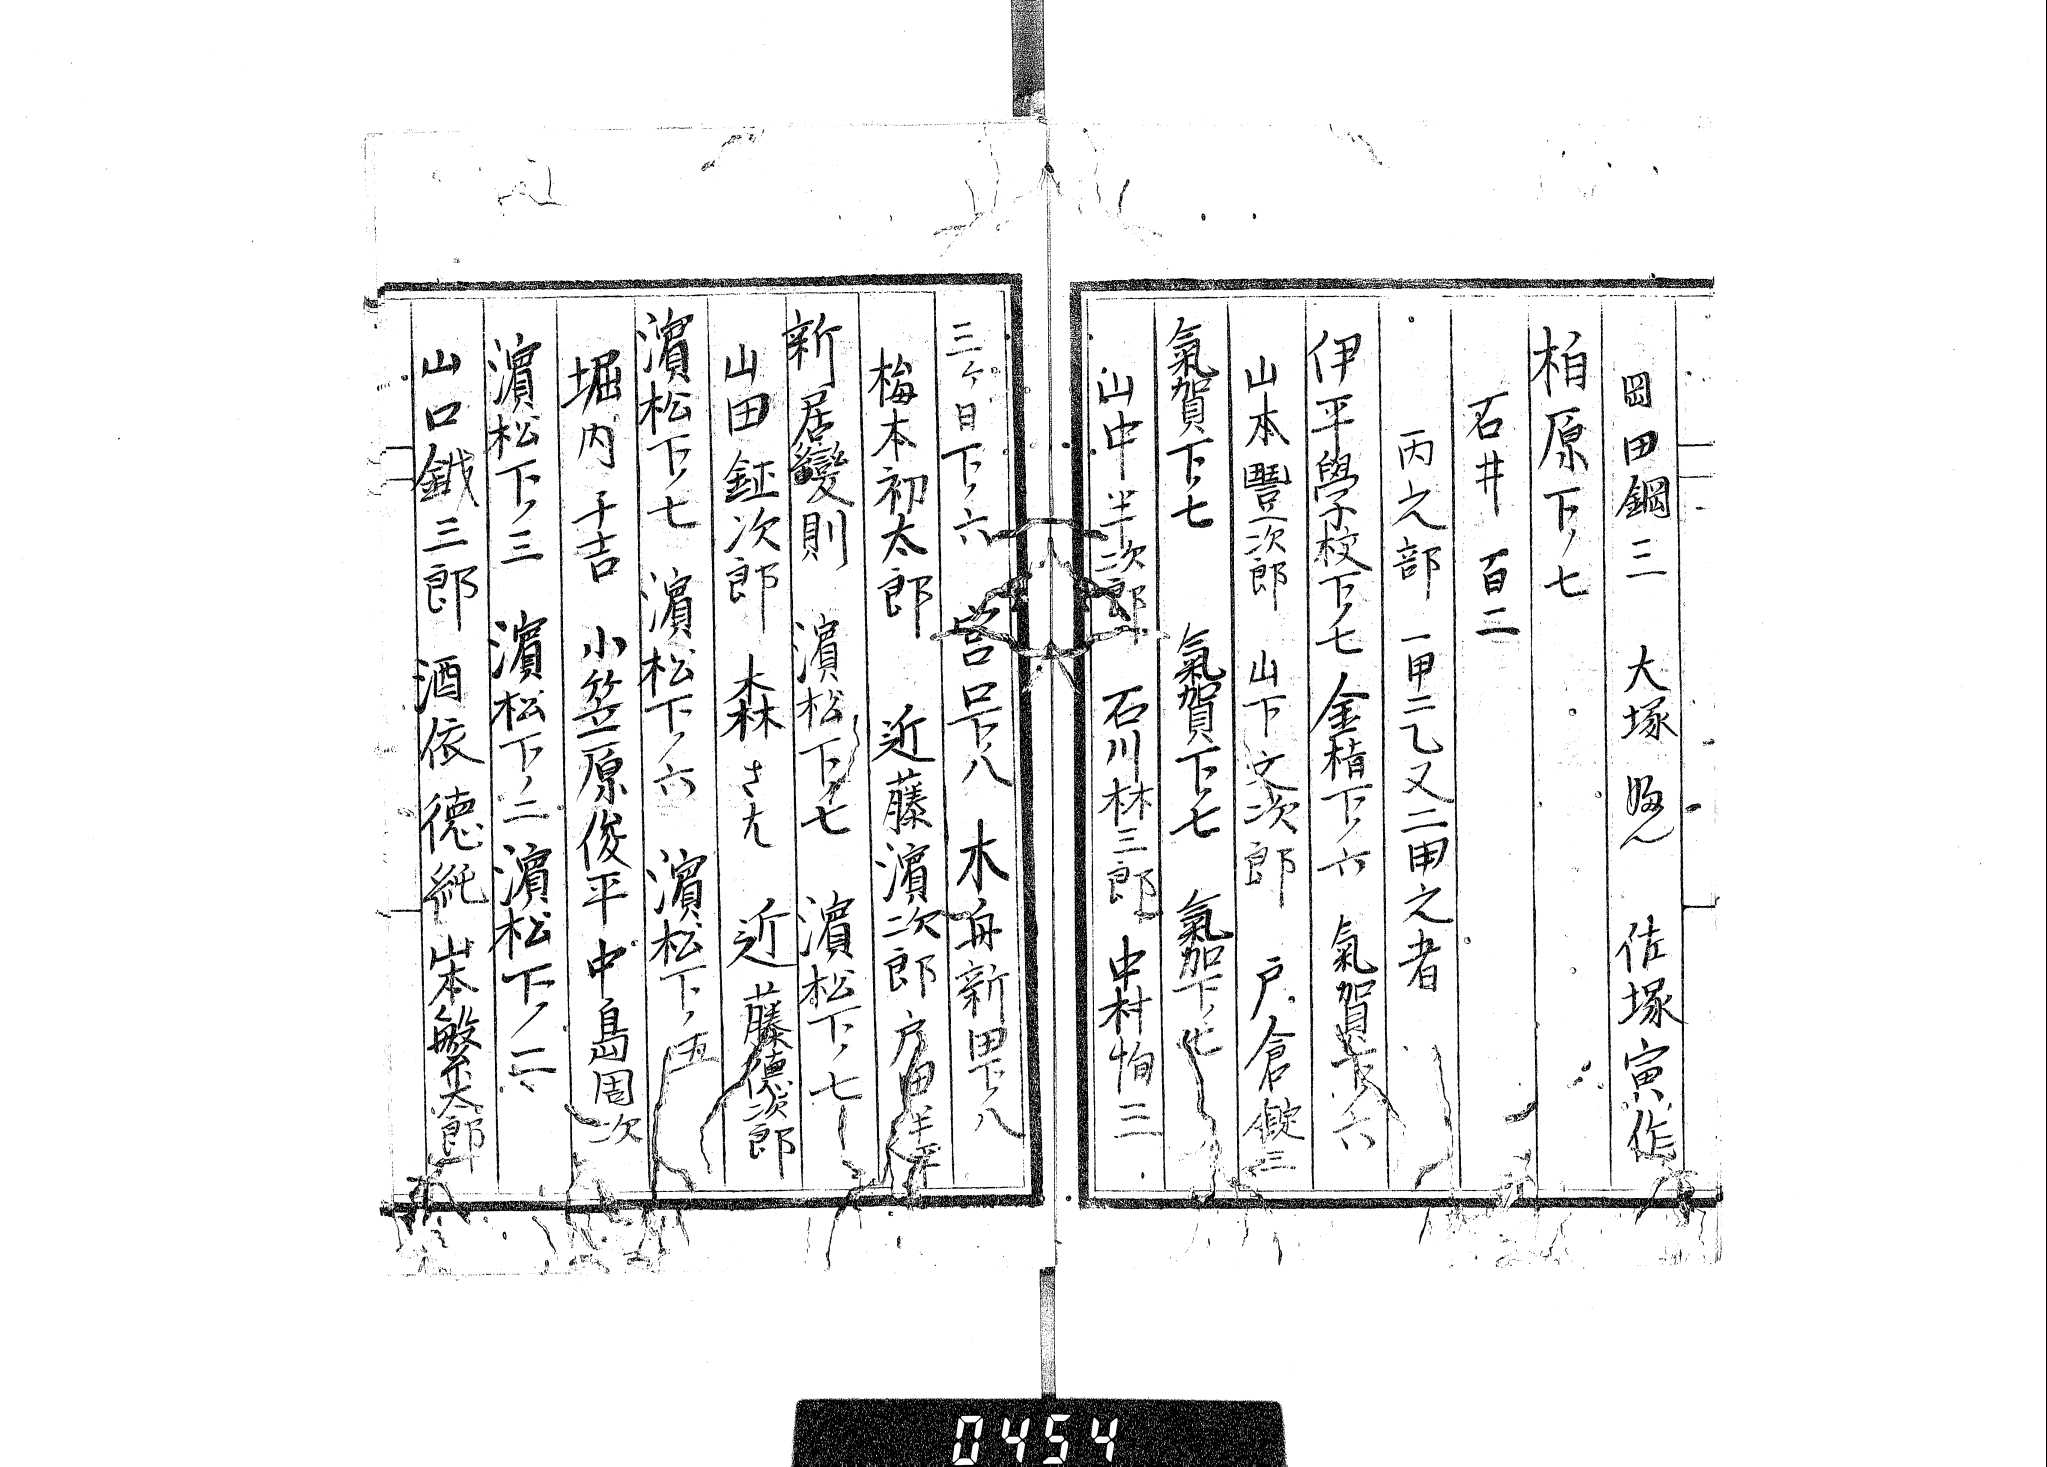 岡田鋼三　大塚　佐塚寅作
柏原下ノ七
石井百二
丙之部　一甲二乙又二甲之者
伊平學校下ノ七　金楷下ノ六　氣賀下ノ六
山本豐次郎　山下文次郎　戸倉儀三
氣賀下ノ七　氣賀下ノ七　氣賀下ノ七
山中半次郎　石川林三郎　中村恂三
三ヶ日下ノ六　宮口下ノ八　木舟新田下ノ八
梅本初太郎　近藤濱次郎　戸田半平
新居變則　濱松下ノ七　濱松下ノ七
山田鉦次郎　森さた　近藤德次郎
濱松下ノ七　濱松下ノ六　濱松下ノ五
堀内千吉　小笠原俊平　中島周次
濱松下ノ三　濱松下ノ二　濱松下ノ二
山口鉞三郎　酒依德純　山本繁太郎
0454